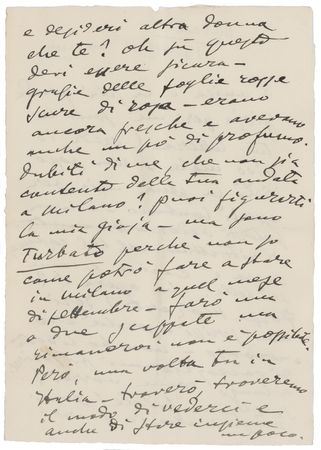 e desideri altra donna
che te? oh su questo
devi essere sicura –
grazie delle foglie rosse
scure di rosa – erano
ancora fresche e avevano
anche un pò di profumo.
Dubiti di me, che non sia
contento della tua andata
a Milano? puoi figurarti
la mia gioja – ma sono
turbato perchè non so
come potrò fare a stare
in Milano a quel mese
di settembre – farò una
o due scappate ma
rimanervi non è possibile.
Però, una volta tu in
Italia – troverò, troveremo
il modo di vederci e
anche di stare insieme
un poco.